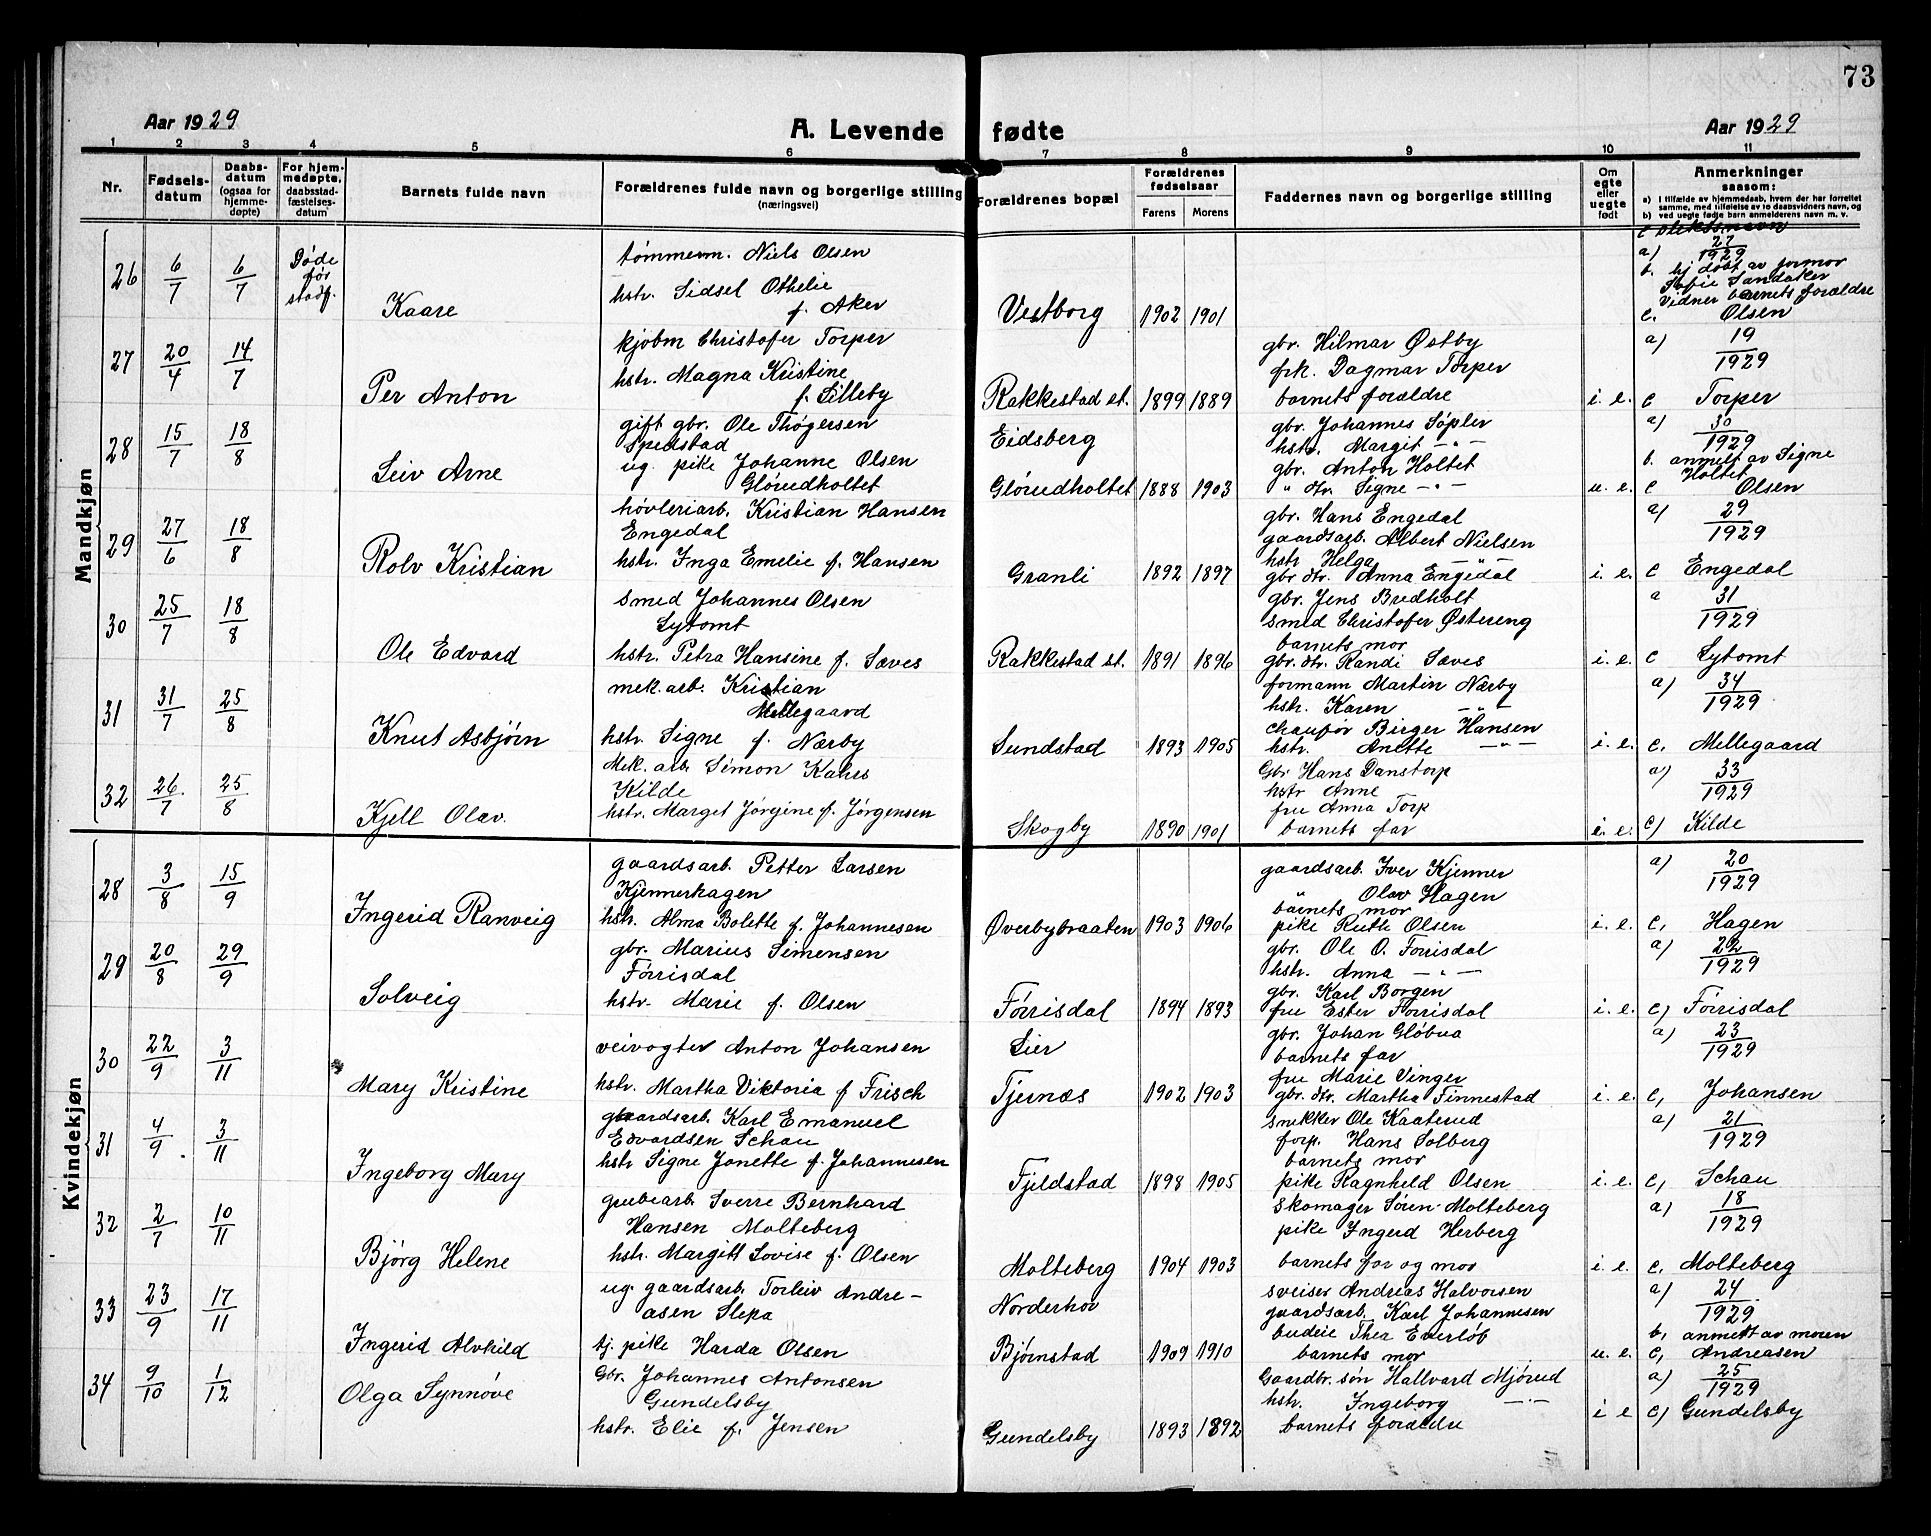 73
Aar 1929
A. Levende fødte
Aar 1929
1 2 3 4 5 6 7 8 9 10 11
Nr.
Fødsels-
datum
Daabs-
datum
(ogsaa for
hjemme-
døpte)
For hjem-
medøpte,
daabsstad-
fæstelses-
datum
Barnets fulde navn
Forældrenes fulde navn og borgerlige stilling
(næringsvei)
Forældrenes bopæl
Forældrenes
fødselsaar
Farens Morens
Faddernes navn og borgerlige stilling
Om
egte
eller
uegte
født
Anmerkninger
saasom:
a) I tilfælde av hjemmedaab, hvem der har forrettet
samme, med tilføielse av to daabsvidners navn, og
b) ved uegte fødte barn anmelderens navn m. v.
c slektsnavn
Mandkjøn
26 6/7 6/7 Døde
før
stadf.
Kaare
tømmerm. Niels Olsen
hstr. Sidsel Othelie
f. Aker
Vestborg 1902 1901
a) 27/1929
b. hj døbt av formor
Sofie Sandaker
Vidner barnets forældre
c. Olsen
27 20/4 14/7
Per Anton
kjøbm Christofer Torper
hstr. Magna Kristine
f. Lilleby
Rakkestad st. 1899 1889
gbr. Hilmar Østby
frk. Dagmar Torper
barnets forældre
i. e.
a) 19/1929
c Torper
28 15/7 18/8
Leiv Arne
gift gbr. Ole Thøgersen
Spedstad
ug. pike Johanne Olsen
Glørudholtet
Eidsberg
Glørudholtet 1888 1903
gbr. Johannes Søpler
hstr. Margit - " -
gbr. Anton Holtet
" dtr. Signe - " -
u. e.
a) 30/1929
b. anmelt av Signe
Holtet
c Olsen
29 27/6 18/8
Rolv Kristian
høvleriarb. Kristian Hansen
Engedal
hstr. Inga Emelie f. Hansen
Granli 1892 1897
gbr. Hans Engedal
gaardsarb. Albert Nielsen
hstr Helga - " -
gbr dtr. Anna Engedal
i. e.
a) 29/1929
c Engedal
30 25/7 18/8
Ole Edvard
smed Johannes Olsen
Lytomt
hstr. Petra Hansine f. Sæves
Rakkestad st. 1891 1896
gbr. Jens Bredholt
smed Christofer Østereng
barnets mor
gbr. dtr. Randi Sæves
i. e.
a 31/1929
c Lytomt
31 31/7 25/8
Knut Asbjørn
mek. arb. Kristian
Mellegaard
hstr. Signe f. Nærby
Lundstad 1893 1905
formann Martin Nærby
hstr. Karen - " -
chaufør Birger Hansen
hstr. Anette - " -
i. e.
a) 34/1929
c. Mellegaard
32 26/7 25/8
Kjell Olav.
Mek. arb. Simon
Kilde
hstr. Marget Jørgine f. Jørgensen
Skogby 1890 1901
Gbr Hans Danstorp
hstr Anne
fru Anna Torp
barnets far
i. e.
a) 33/1929
c) Kilde
Kvindekjøn
28 3/8 15/9
Ingerid Ranveig
gaardsarb. Petter Larsen
Kjennerhagen
hstr. Alma Bolette f. Johannesen
Øverbybraaten 1903 1906
gaardsarb. Iver Kjenner
" Olav Hagen
barnets mor
pike Ruth Olsen
i. e.
a) 20/1929
c, Hagen
29 20/8 29/9
Solveig
gbr. Marius Simensen
Førrisdal
hstr. Marie f. Olsen
Førrisdal 1894 1893
gbr. Ole O. Førrisdal
hstr. Anna - " -
gbr. Karl Borgen
fru Ester Førrisdal
i. e.
a) 22/1929
c) Førrisdal
30 22/9 3/11
Mary Kristine
veivogter Anton Johansen
hstr. Martha Viktoria f Frisch
Lier
Tjernæs 1902 1903
gbr. Johan Gløbua
barnets far
fru Marie Vinger
gbr. dtr. Martha Finnestad
i. e.
a) 23/1929
c, Johansen
31 4/9 3/11
Ingeborg Mary
gaardsarb. Karl Emanuel
Edvardsen Schau
hstr Signe Jonette f. Johannesen
Fjeldstad 1898 1905
snekker Ole Kaaterud
forp. Hans Solberg
barnets mor
pike Ragnhild Olsen
i. e.
a) 21/1929
c, Schau
32 2/7 10/11
Bjørg Helene
grubearb. Sverre Bernhard
Hansen Molteberg
hstr. Margitt Lovise f. Olsen
Molteberg 1904 1903
skomager Søren Molteberg
pike Ingerd Herberg
barnets far og mor
i. e.
a) 18/1929
c, Molteberg
33 23/9 17/11
Ingerid Alvhild
ug. gaardsarb. Torleiv Andre-
asen Slepa
tj. pike Harda Olsen
Norderhov
Bjørnstad 1909 1910
sveiser Andreas Halvorsen
gaardsarb. Karl Johannesen
budeie Thea Everløb
barnets mor
u. e.
a) 24/1929
b, anmelt av moren
c, Andreasen
34 9/10 1/12
Olga Synnøve
Gbr. Johannes Antonsen
Gundelsby
hstr. Elie f. Jensen
Gundelsby 1893 1892
Gaardbr. søn Hallvard Mjørud
hstr. Ingeborg - " -
barnets foraldre
i e
a) 25/1929
c) Gundelsby